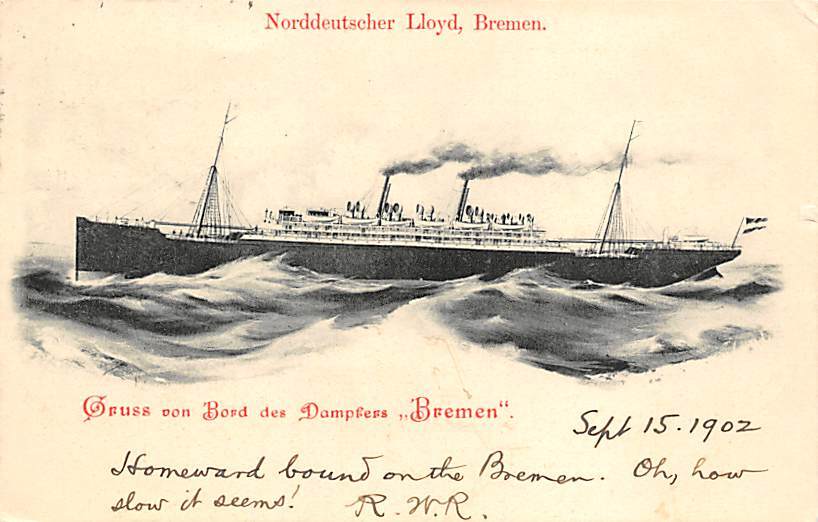 Norddeutscher Lloyd, Bremen.
Gruss von Bord des Dampfers „Bremen“.
Sept 15. 1902
Homeward bound on the Bremen. Oh, how
slow it seems! R. W. R.